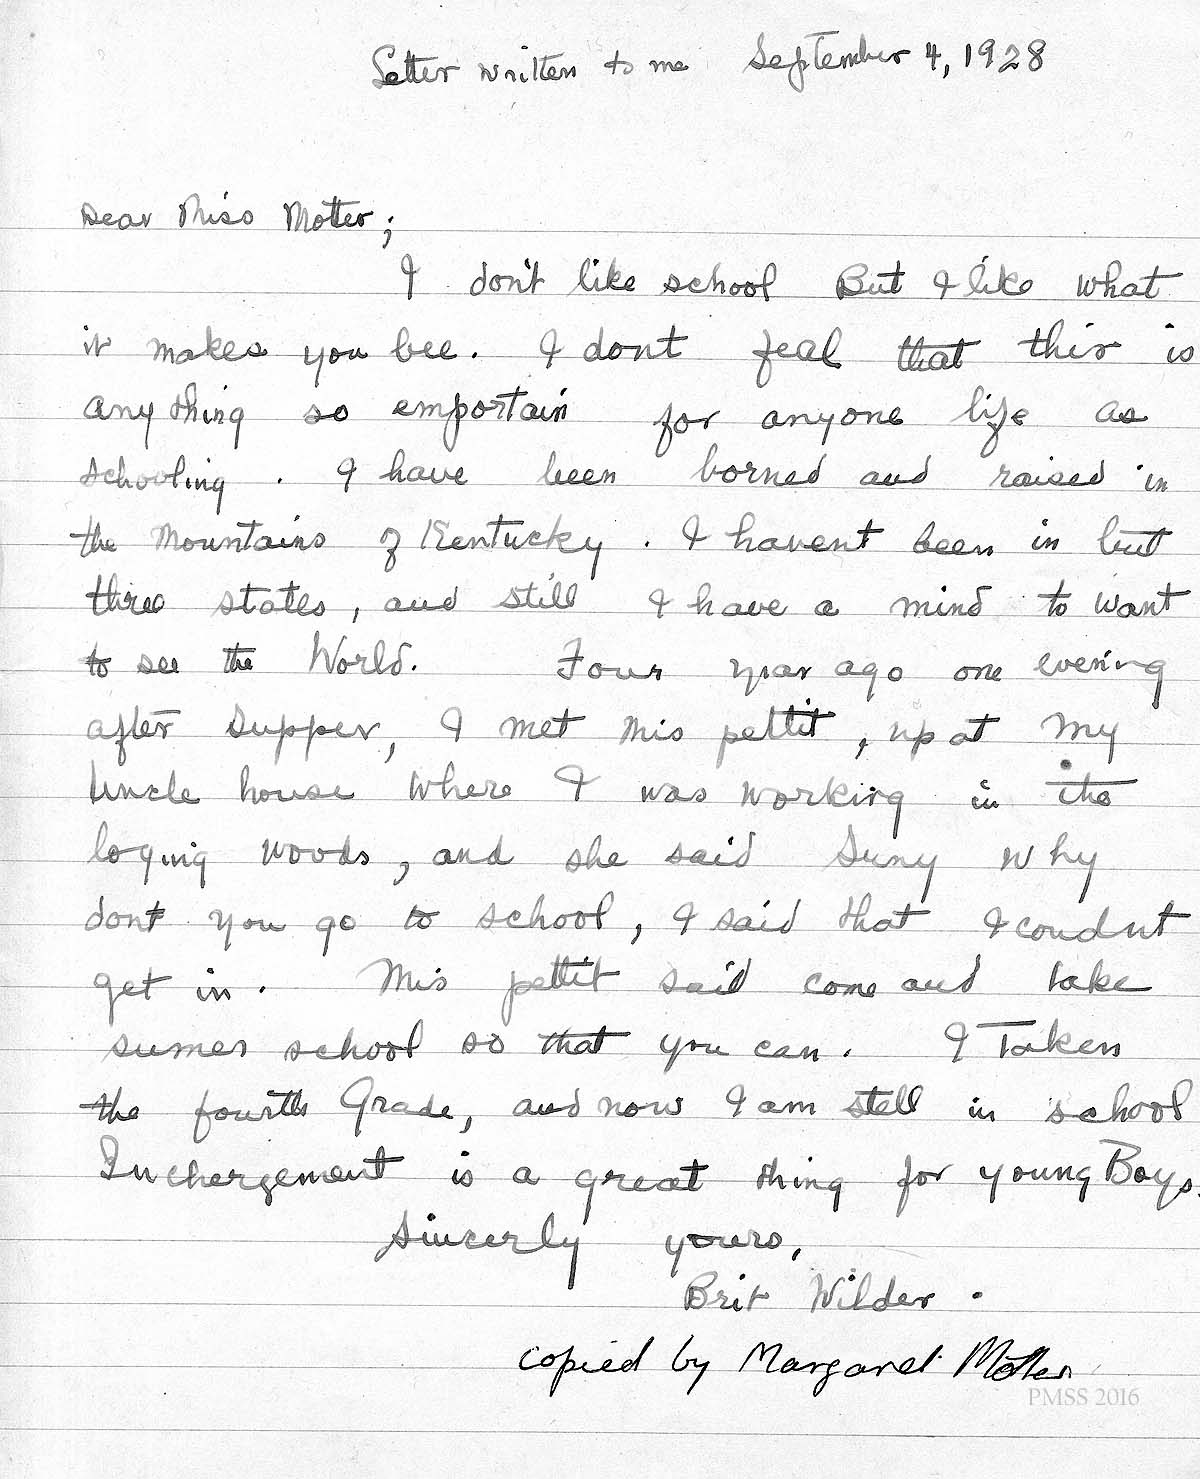 Letter written to me September 4, 1928
Dear Miss Motter;
I don't like school But I like what
it makes you bee. I dont feal that this is
any thing so emportain for anyone life as
schooling. I have been borned and raised in
the Mountains of Kentucky. I havent been in but
three states, and still I have a mind to want
to see the World. Four year ago one evening
after supper, I met Mis pettit, up at my
Uncle house where I was working in the
loging woods, and she said Suny why
dont you go to school, I said that I coudnt
get in. Mis pettit said come and take
sumer school so that you can. I Taken
the fourth Grade, and now I am stell in school
Inchergement is a great thing for young Boys.
Sincerly yours,
Brit Wilder.
copied by Margaret Motter
PMSS 2016